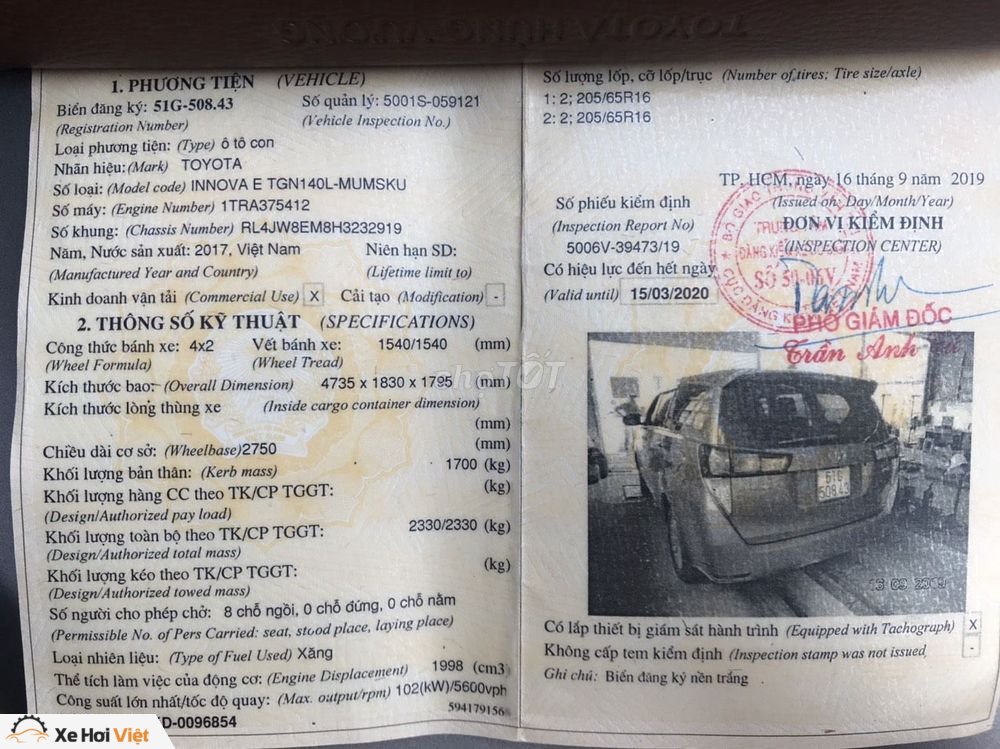 TOYOTA HÙNG VƯƠNG
1. PHƯƠNG TIỆN (VEHICLE)
Biển đăng ký: 51G-508.43 Số quản lý: 5001S-059121
(Registration Number) (Vehicle Inspection No.)
Loại phương tiện: (Type) ô tô con
Nhãn hiệu: (Mark) TOYOTA
Số loại: (Model code) INNOVA E TGN140L-MUMSKU
Số máy: (Engine Number) 1TRA375412
Số khung: (Chassis Number) RL4JW8EM8H3232919
Năm, Nước sản xuất: 2017, Việt Nam Niên hạn SD:
(Manufactured Year and Country) (Lifetime limit to)
Kinh doanh vận tải (Commercial Use) X Cải tạo (Modification) -
2. THÔNG SỐ KỸ THUẬT (SPECIFICATIONS)
Công thức bánh xe: 4x2 Vết bánh xe: 1540/1540 (mm)
(Wheel Formula) (Wheel Tread)
Kích thước bao: (Overall Dimension) 4735 x 1830 x 1795 (mm)
Kích thước lòng thùng xe (Inside cargo container dimension)
(mm)
Chiều dài cơ sở: (Wheelbase)2750 (mm)
Khối lượng bản thân: (Kerb mass) 1700 (kg)
Khối lượng hàng CC theo TK/CP TGGT: (kg)
(Design/Authorized pay load)
Khối lượng toàn bộ theo TK/CP TGGT: 2330/2330 (kg)
(Design/Authorized total mass)
Khối lượng kéo theo TK/CP TGGT: (kg)
(Design/Authorized towed mass)
Số người cho phép chở: 8 chỗ ngồi, 0 chỗ đứng, 0 chỗ nằm
(Permissible No. of Pers Carried: seat, stood place, laying place)
Loại nhiên liệu: (Type of Fuel Used) Xăng
Thể tích làm việc của động cơ: (Engine Displacement) 1998 (cm3)
Công suất lớn nhất/tốc độ quay: (Max. output/rpm) 102(kW)/5600vph
594179156
D-0096854
Số lượng lốp, cỡ lốp/trục (Number of tires; Tire size/axle)
1: 2; 205/65R16
2: 2; 205/65R16
TP. HCM, ngày 16 tháng 9 năm 2019
Số phiếu kiểm định (Issued on: Day/Month/Year)
(Inspection Report No) ĐƠN VỊ KIỂM ĐỊNH
5006V-39473/19 (INSPECTION CENTER)
Có hiệu lực đến hết ngày
(Valid until) 15/03/2020
SỐ 50-06V
PHÓ GIÁM ĐỐC
Trần Anh
51G
508.43
16 09 2019
Có lắp thiết bị giám sát hành trình (Equipped with Tachograph) X
Không cấp tem kiểm định (Inspection stamp was not issued -
Ghi chú: Biển đăng ký nền trắng
chợTỐT
Xe Hơi Việt